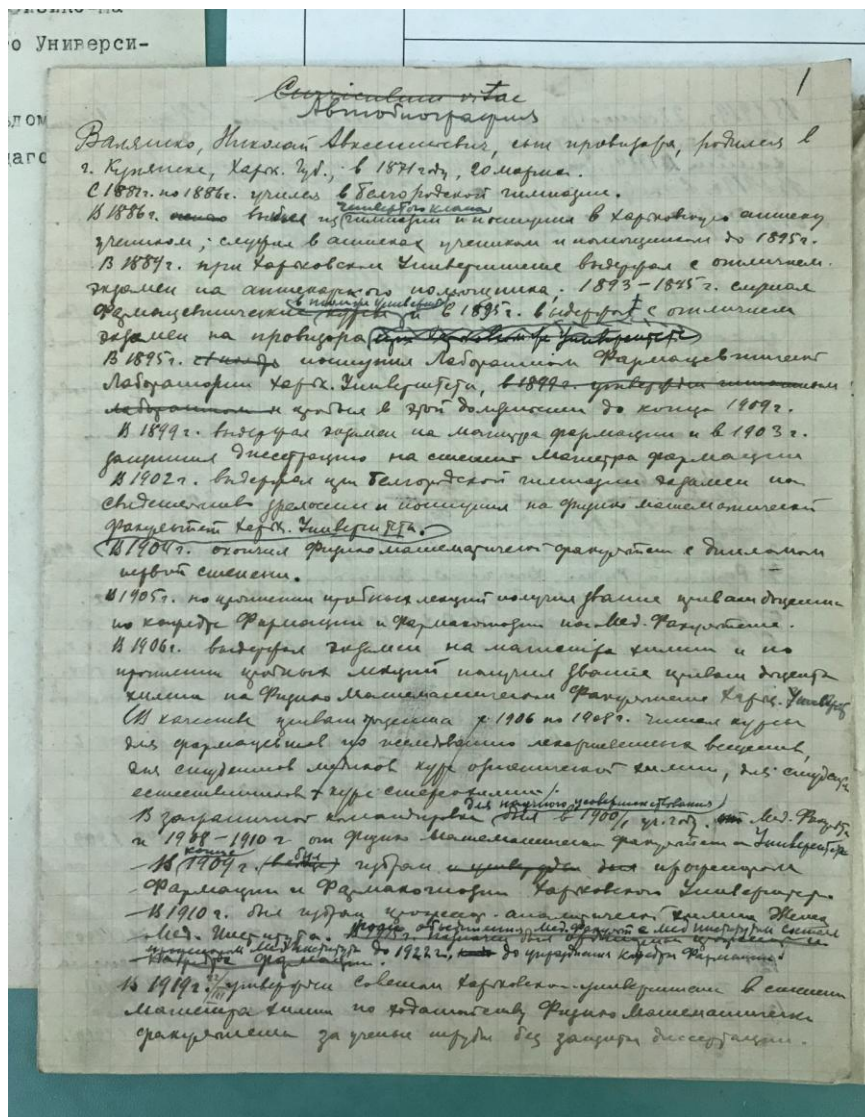 о Универси-
1
Curriculum vitae
Автобиография
Валяшко, Николай Авксентьевич, сын провизора, родился в
г. Купянске, Харьк. Губ., в 1871 году, 20 марта.
С 1881г. по 1886г. учился в Белгородской гимназии.
четвертого класса
В 1886г. выбыл из гимназии и поступил в Харьковскую аптеку
учеником; служил в аптеках учеником и помощником до 1895г.
В 1889г. при Харьковском Университете выдержал с отличием
экзамен на аптекарского помощника. 1893–1895г. слушал
в том же университете
Фармацевтические курсы и в 1895г. выдержал с отличием
экзамен на провизора при Харьковском Университете
В 1895г. поступил Лаборантом Фармацевтической
Лаборатории Харьк. Университета, в 1899г. утвержден штатным
лаборантом и пробыл в этой должности до конца 1909г.
В 1899г. выдержал экзамен на магистра фармации и в 1903г.
защитил диссертацию на степень магистра фармации
В 1902г. выдержал при Белгородской гимназии экзамен на
свидетельство зрелости и поступил на физико математический
факультет Харьк. Университета.
В 1904г. окончил Физико математический факультет с дипломом
первой степени.
В 1905г. по прочтении пробных лекций получил звание приват доцента
по кафедре Фармации и Фармакогнозии на Мед. Факультете.
В 1906г. выдержал экзамен на магистра химии и по
прочтении пробных лекций получил звание приват доцента
химии на Физико Математическом Факультете Харьк. Универс
(В качестве приват доцента с 1906 по 1908г. читал курсы
для фармацевтов по исследованию лекарственных веществ,
для студентов медиков курс органической химии, для студентов
естественников курс стереохимии).
для научного усовершенствования
В заграничной командировке был в 1900/1 уч. году от Мед. Факультета
и 1908–1910г от Физико Математического факультета Университета
конце был
В 1909г. избран профессором
Фармации и Фармакогнозии Харьковского Университета
В 1910г. был избран профессор. аналитической химии Женск
Мед. Института.
до 1922г., до упразднения кафедры Фармации
В 1919г. утвержден советом Харьковского университета в степени
Магистра химии по ходатайству Физико Математического
факультета за ученые труды без защиты диссертации.